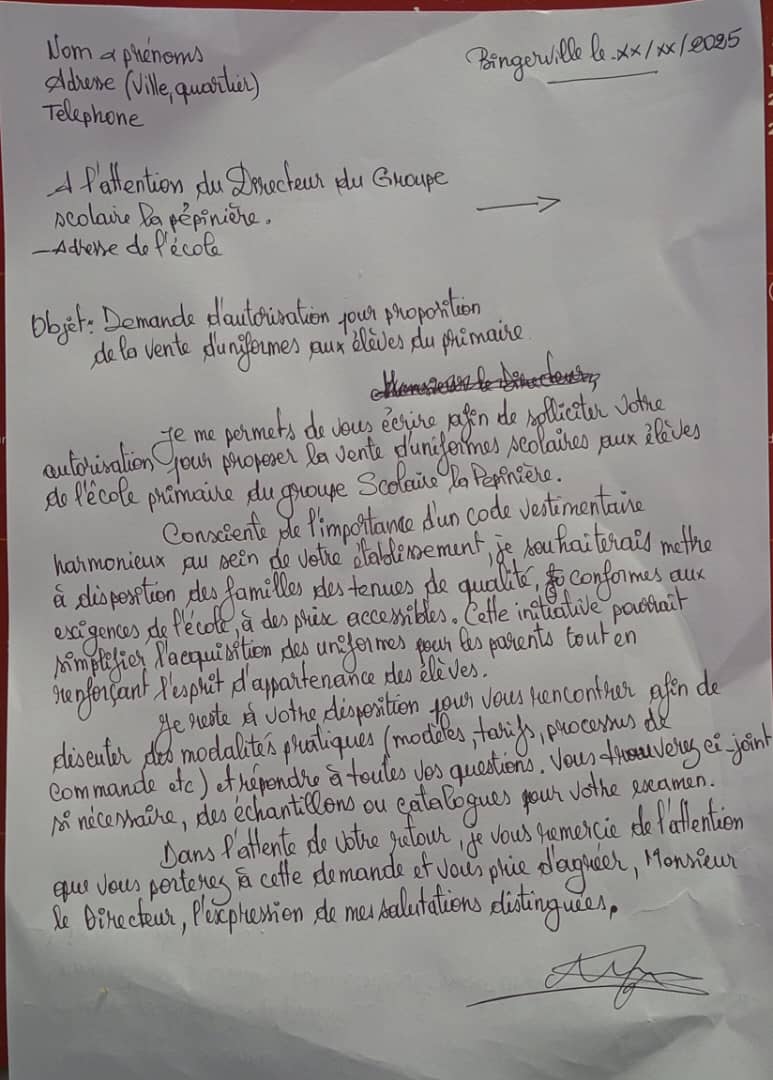 Nom & prénoms
Bingerville le xx/xx/2025
Adresse (Ville, quartier)
Telephone
A l'attention du Directeur du Groupe
scolaire la pépinière.
- Adresse de l'école
Objet: Demande d'autorisation pour proposition
de la vente d'uniformes aux élèves du primaire
Monsieur le Directeur,
Je me permets de vous écrire afin de solliciter votre
autorisation pour proposer la vente d'uniformes scolaires aux élèves
de l'école primaire du groupe Scolaire la Pepinière.
Consciente de l'importance d'un code vestimentaire
harmonieux au sein de votre établissement, je souhaiterais mettre
à disposition des familles des tenues de qualité, conformes aux
exigences de l'école, à des prix accessibles. Cette initiative pourrait
simplifier l'acquisition des uniformes pour les parents tout en
renforçant l'esprit d'appartenance des élèves.
Je reste à votre disposition pour vous rencontrer afin de
discuter des modalités pratiques (modèles, tarifs, processus de
commande etc) et répondre à toutes vos questions. Vous trouverez ci-joint
si nécessaire, des échantillons ou catalogues pour votre examen.
Dans l'attente de votre retour, je vous remercie de l'attention
que vous porterez à cette demande et vous prie d'agréer, Monsieur
le Directeur, l'expression de mes salutations distinguées.